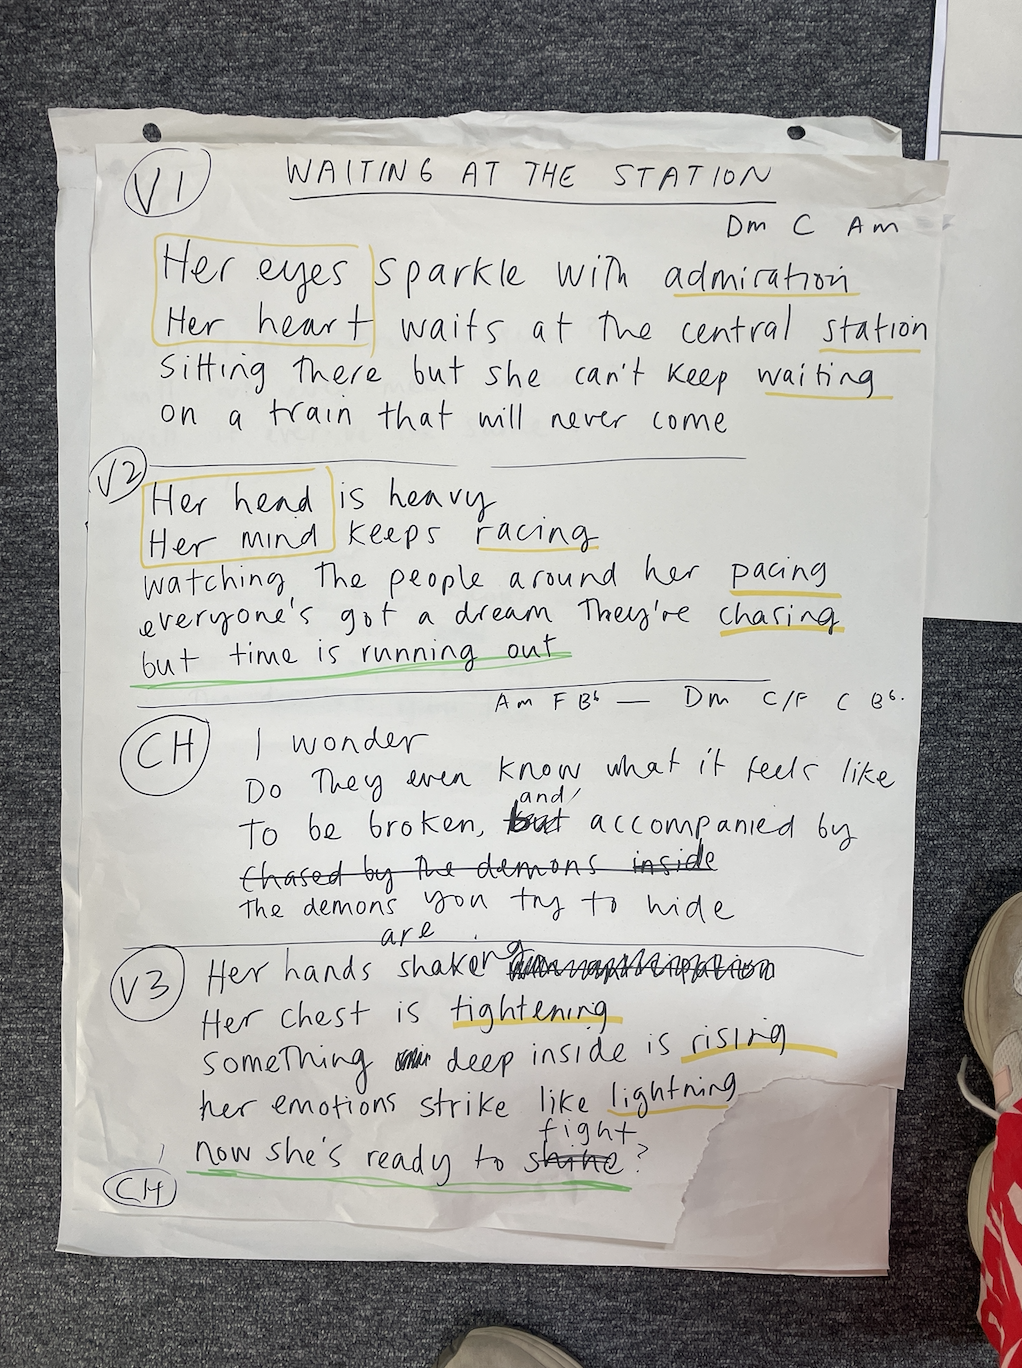 V1
WAITING AT THE STATION
Dm C Am
Her eyes sparkle with admiration
Her heart waits at the central station
sitting there but she can't keep waiting
on a train that will never come
V2
Her head is heavy
Her mind keeps racing
watching the people around her pacing
everyone's got a dream they're chasing
but time is running out
Am F Bb — Dm C/F C Bb.
CH
I wonder
Do they even know what it feels like
and
to be broken, but accompanied by
chased by the demons inside
the demons you try to hide
are
V3
Her hands shaking
Her chest is tightening
something deep inside is rising
her emotions strike like lightning
fight
now she's ready to shine?
CH